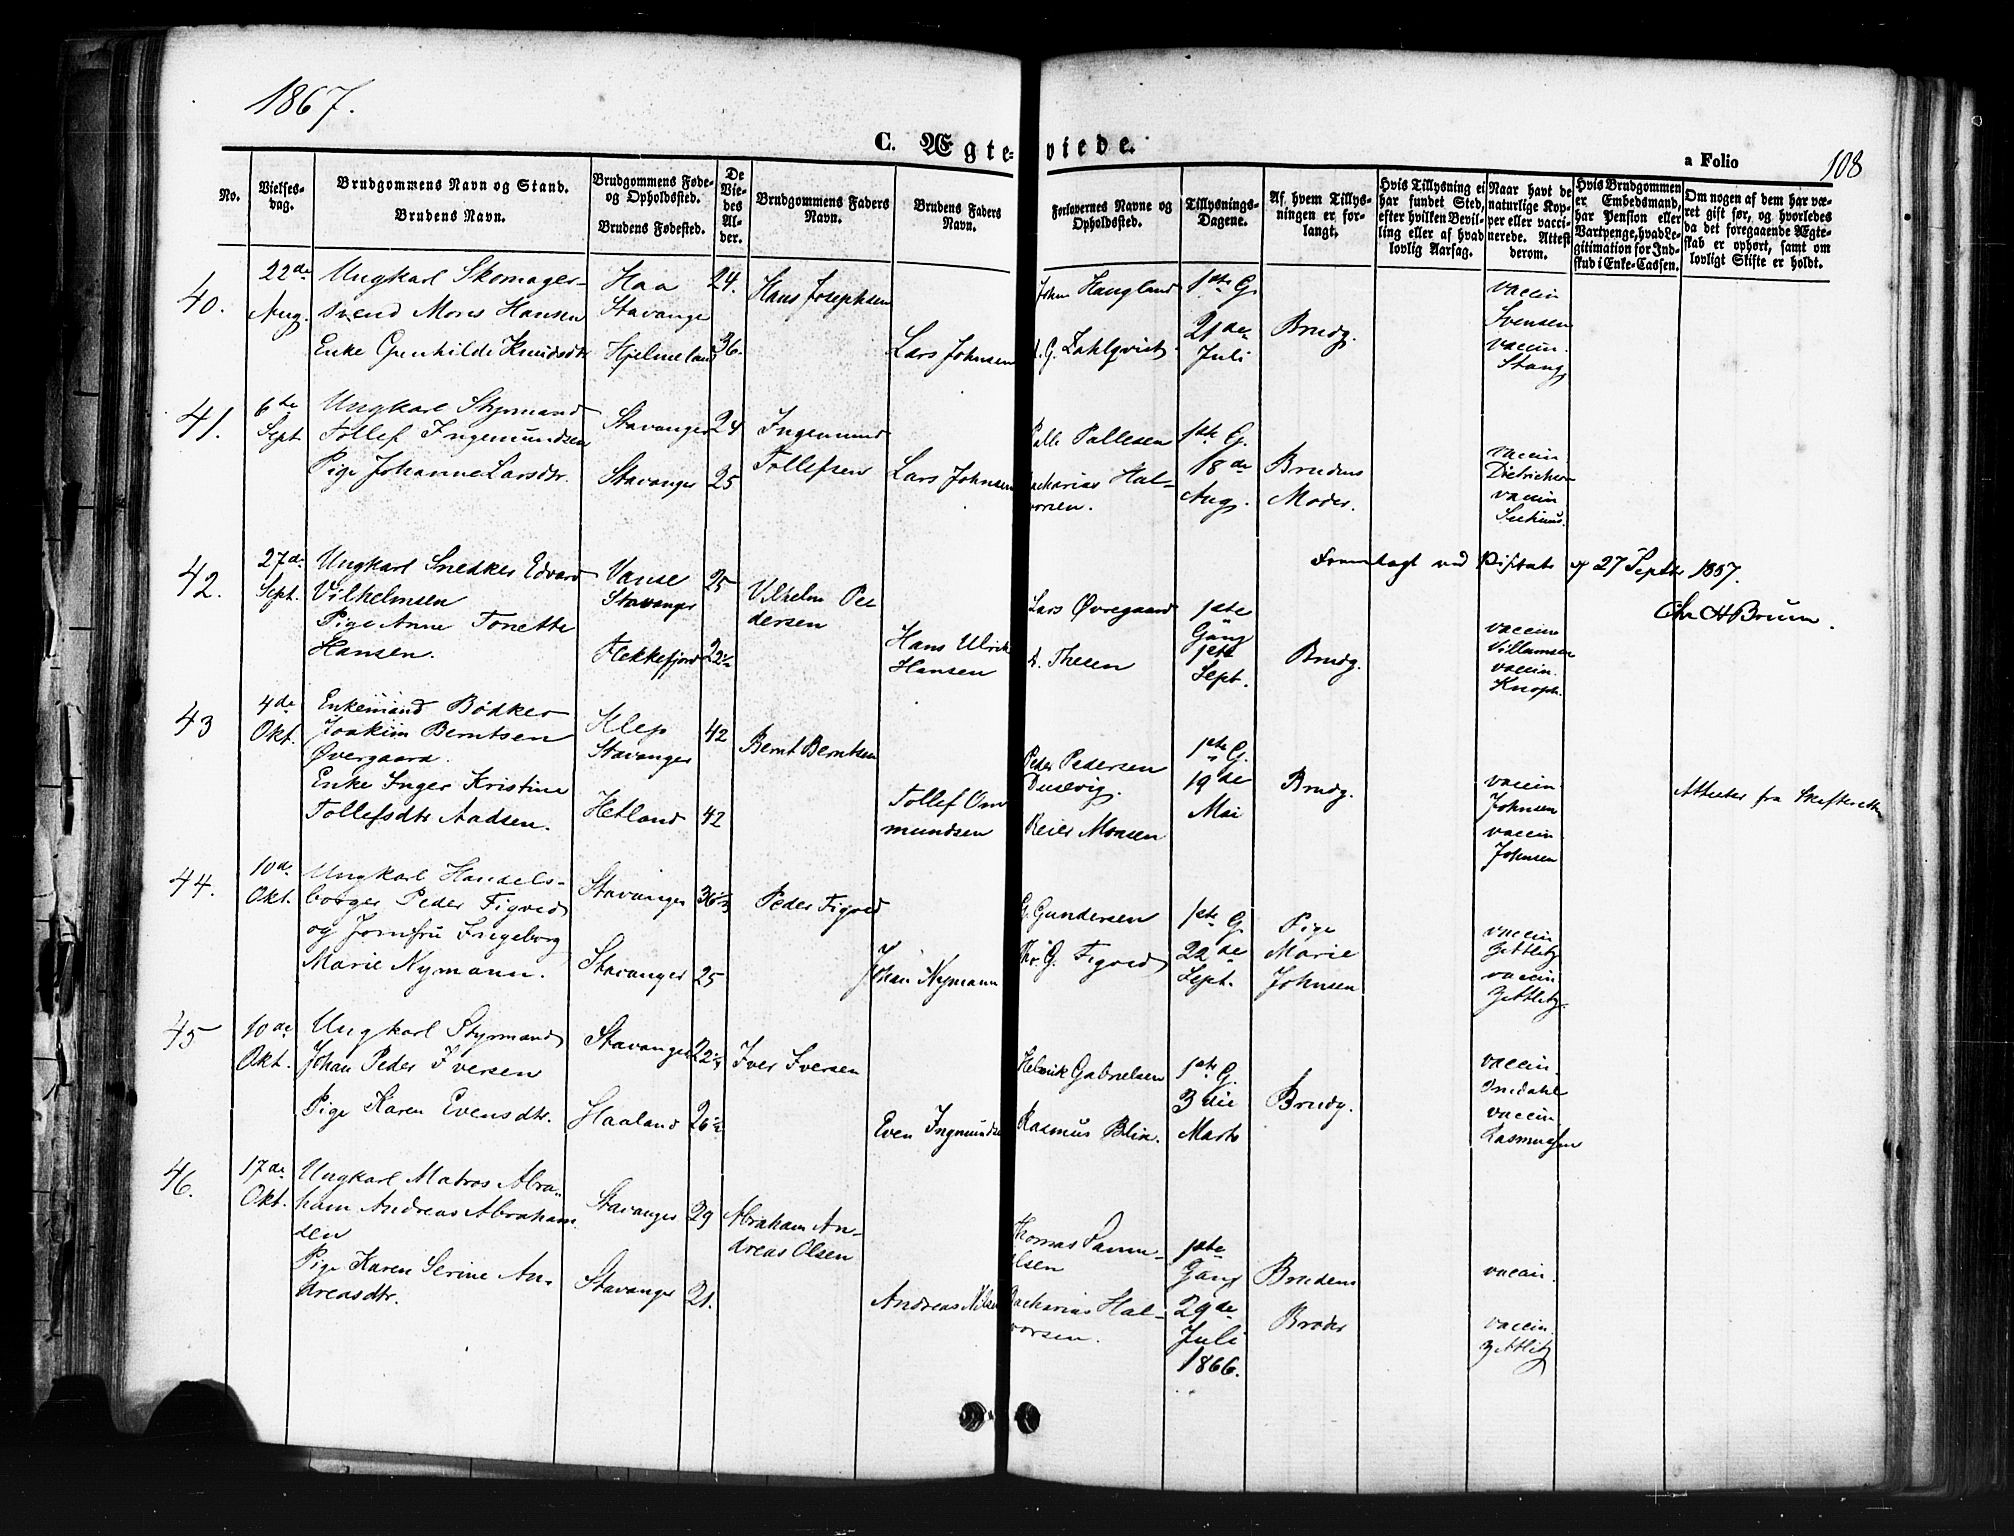 1867.
C. Ægte-viede.
a Folio 108
No.
Vielses-dag.
Brudgommens Navn og Stand.
Brudens Navn.
Brudgommens Føde- og Opholdssted.
Brudens Fødested.
De Viedes Alder.
Brudgommens Faders Navn.
Brudens Faders Navn.
Forlovernes Navne og Opholdssted.
Tillysnings-Dagene.
Af hvem Tillysningen er forlangt.
Hvis Tillysning ei har fundet Sted, efter hvilken Bevilling eller af hvad lovlig Aarsag.
Naar havt de naturlige Kopper eller vaccinerede. Attest derom.
Hvis Brudgommen er Embedsmand, har Pension eller Vartpenge, hvad Legitimation for Indskud i Enke-Cassen.
Om nogen af dem har været gift før, og hvorledes da det foregaaende Ægteskab er ophørt, samt om lovligt Skifte er holdt.
40.
22de Aug.
Ungkarl Skomager-
svend Mons Hansen
Enke Gunhilde Knudsdtr
Haa
Stavanger
Hjelmeland
24.
36.
Hans Josephsen
Lars Johnsen
John Haugland
G. Zahlqvist
1ste G.
21de
Juli
Brudg.
vaccin
Svensen
vaccin.
Stang
41.
6te Sept
Ungkarl Styrmand
Tollef Ingemundsen
Pige Johanne Larsdtr.
Stavanger
Stavanger
24
25
Ingemund
Tollefsen
Lars Johnsen
Palle Pallesen
Zacharias Hal-
vorsen.
1ste G.
18de
Aug.
Brudens
Moder.
vaccin
Dietrichson
vaccin
42.
27de Sept.
Ungkarl Snedker Edvard
Vilhelmsen
Pige Anne Tonette
Hansen.
Vanse
Stavanger
Flekkefjord
25
22½
Vilhelm Pe
dersen
Hans Ulrik
Hansen
Lars Øvregaard
Thesen
1ste
Gang
1ste
Sept.
Brudg.
27 Septbr 1857.
Chr H Bruun.
vaccin
Villumsen
vaccin.
Knoph.
43
4de Okt.
Enkemand Bødker
Joakim Berntsen
Øvergaard.
Enke Inger Kristine
Tollefsdtr Aadsen.
Klep
Stavanger
Hetland
42
42
Bernt Berntsen
Tollef Om
mundsen
Peder Pedersen
Dusevig.
Reier Monsen
1ste G.
19de
Mai
Brudg.
vaccin
Johnsen
vaccin
Johnsen
Attester fra Skifteretten
44.
10de Okt.
Ungkarl Handels-
borger Peder Figved
og Jomfru Ingeborg
Marie Nymann.
Stavanger
Stavanger
36½
25
Peder Figved
Johan Nymann
G. Gundersen
Chr. G. Figved
1ste G.
22de
Sept.
Pige
Marie
Johnsen
vaccin
Zettlitz
vaccin
Zettlitz.
45
10de Okt.
Ungkarl Styrmand
Johan Peder Iversen
Pige Karen Evensdtr.
Stavanger
Haaland
22½
26½
Iver Iversen
Even Ingmundsen
Helmik Gabrielsen
Rasmus Blix.
1ste G.
3die
Marts
Brudg.
vaccin.
vaccin
Rasmussen
46.
17de Okt.
Ungkarl Matros Abra-
ham Andreas Abraham
sen
Pige Karen Serine An-
dreasdtr.
Stavanger
Stavanger
29
21.
Abraham An-
dreas Olsen
Andreas Nilsen
Thomas Samu-
elsen
Zacharias Hal-
vorsen.
1ste
Gang
29de
Juli
1866.
Brudens
Broder
vaccin.
vaccin.
Zettlitz